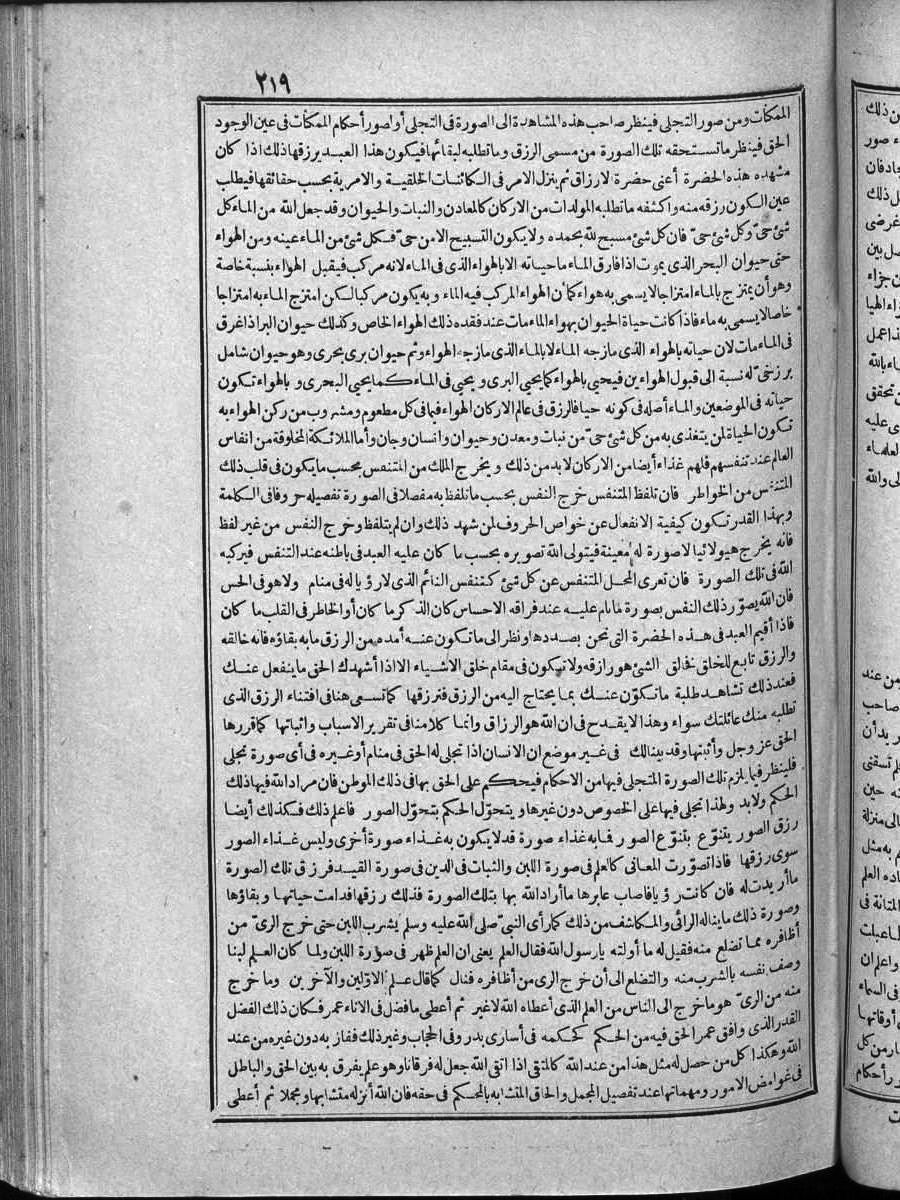 ٢١٩
الممكنات ومن صور التجلى فينظر صاحب هذه المشاهدة الى الصورة فى التجلى أو لصور أحكام الممكنات فى عين الوجود
الحق فينظر ما تستحقه تلك الصورة من مسمى الرزق وما تطلبه لبقائها فيكون هذا العبد يرزقها ذلك اذا كان
مشهده هذه الحضرة أعنى حضرة الارزاق ثم يتنزل الامر فى الكائنات الخلقية والامرية بحسب حقائقها فيطلب
عين الكون رزقه منه واكشفه ما تطلبه المولدات من الاركان كالمعادن والنبات والحيوان وقد جعل الله من الماء كل
شئ حىّ وكل شئ حىّ فان كل شئ مسبح لله بحمده ولا يكون التسبيح الا من حىّ فكل شئ من الماء عينه ومن الهواء
حتى حيوان البحر الذى يموت اذا فارق الماء ما حياته الا بالهواء الذى فى الماء لانه مركب فيقبل الهواء بنسبة خاصة
وهو أن يمتزج بالماء امتزاجا لا يسمى به هواء كما أن الهواء المركب فيه الماء وبه يكون مركبا لكن امتزج الماء به امتزاجا
خاصا لا يسمى به ماء فاذا كانت حياة الحيوان بهواء الماء مات عند فقده ذلك الهواء الخاص وكذلك حيوان البر اذا غرق
فى الماء مات لان حياته بالهواء الذى مازجه الماء لا بالماء الذى مازجه الهواء وثم حيوان برى بحرى وهو حيوان شامل
برزخىّ له نسبة الى قبول الهواءين فيحيى بالهواء كما يحيى البرى ويحيى فى الماء كما يحيى البحرى وبالهواء تكون
حياته فى الموضعين والماء أصله فى كونه حيا فالرزق فى عالم الاركان الهواء فيما فى كل مطعوم ومشروب من ركن الهواء به
تكون الحياة لمن يتغذى به من كل شئ حىّ من نبات ومعدن وحيوان وانسان وجان وأما الملائكة المخلوقة من انفاس
العالم عند تنفسهم فلهم غذاء أيضا من الاركان لا بد من ذلك ويخرج الملك من المتنفس بحسب ما يكون فى قلب ذلك
المتنفس من الخواطر فان تلفظ المتنفس خرج النفس بحسب ما تلفظ به مفصلا فى الصورة تفصيله حروفا فى الكلمة
وبهذا القدر تكون كيفية الانفعال عن خواص الحروف لمن شهد ذلك وان لم يتلفظ وخرج النفس من غير لفظ
فانه يخرج هيولائيا لا صورة له معينة فيتولى الله تصويره بحسب ما كان عليه العبد فى باطنه عند التنفس فيركبه
الله فى تلك الصورة فان تعرى المحل المتنفس عن كل شئ كتنفس النائم الذى لا رؤيا له فى منام ولا هو فى الحس
فان الله يصوّر ذلك النفس بصورة ما نام عليه عند فراقه الاحساس كان الذكر ما كان أو الخاطر فى القلب ما كان
فاذا أقيم العبد فى هذه الحضرة التى نحن بصددها ونظر الى ما تكون عنه أمده من الرزق ما به بقاؤه فانه خالقه
والرزق تابع للخلق فخالق الشئ هو رازقه ولا تكون فى مقام خلق الاشياء الا اذا أشهدك الحق ما ينفعل عنك
فعند ذلك تشاهد طلبة ما تكوّن عنك بما يحتاج اليه من الرزق فترزقها كما تسعى هنا فى اقتناء الرزق الذى
تطلبه منك عائلتك سواء وهذا لا يقدح فى ان الله هو الرزاق وانما كلامنا فى تقرير الاسباب واثباتها كما قررها
الحق عز وجل وأثبتها وقد بينا لك فى غير موضع ان الانسان اذا تجلى له الحق فى منام أو غيره فى أى صورة تجلى
فلينظر فيما يلزم تلك الصورة المتجلى فيها من الاحكام فيحكم على الحق بها فى ذلك الموطن فان مراد الله فيها ذلك
الحكم ولا بد ولهذا تجلى فيها على الخصوص دون غيرها ويتحوّل الحكم بتحوّل الصور فاعلم ذلك فكذلك أيضا
رزق الصور يتنوّع بتنوّع الصور فما به غذاء صورة قد لا يكون به غذاء صورة أخرى وليس غذاء الصور
سوى رزقها فاذا تصوّرت المعانى كالعلم فى صورة اللبن والثبات فى الدين فى صورة القيد فرزق تلك الصورة
ما أريدت له فان كانت رؤيا فاصاب عابرها ما أراد الله بها بتلك الصورة فذلك رزقها فدامت حياتها وبقاؤها
وصورة ذلك ما يناله الرائى والمكاشف من ذلك كما رأى النبىّ صلى الله عليه وسلم يشرب اللبن حتى خرج الرىّ من
أظافره مما تضلع منه فقيل له ما أولته يا رسول الله فقال العلم يعنى ان العلم ظهر فى صورة اللبن ولما كان العلم لبنا
وصف نفسه بالشرب منه والتضلع الى أن خرج الرى من أظافره فنال كما قال علم الاوّلين والآخرين وما خرج
منه من الرىّ هو ما خرج الى الناس من العلم الذى أعطاه الله لا غير ثم أعطى ما فضل فى الاناء عمر فكان ذلك الفضل
القدر الذى وافق عمر الحق فيه من الحكم كحكمه فى أسارى بدر وفى الحجاب وغير ذلك ففاز به دون غيره من عند
الله وهكذا كل من حصل له مثل هذا من عند الله كالمتقى اذا اتقى الله جعل له فرقانا وهو علم يفرق به بين الحق والباطل
فى غوامض الامور ومهماتها عند تفصيل المجمل والحاق المتشابه بالمحكم فى حقه فان الله أنزله متشابها ومجملا ثم أعطى